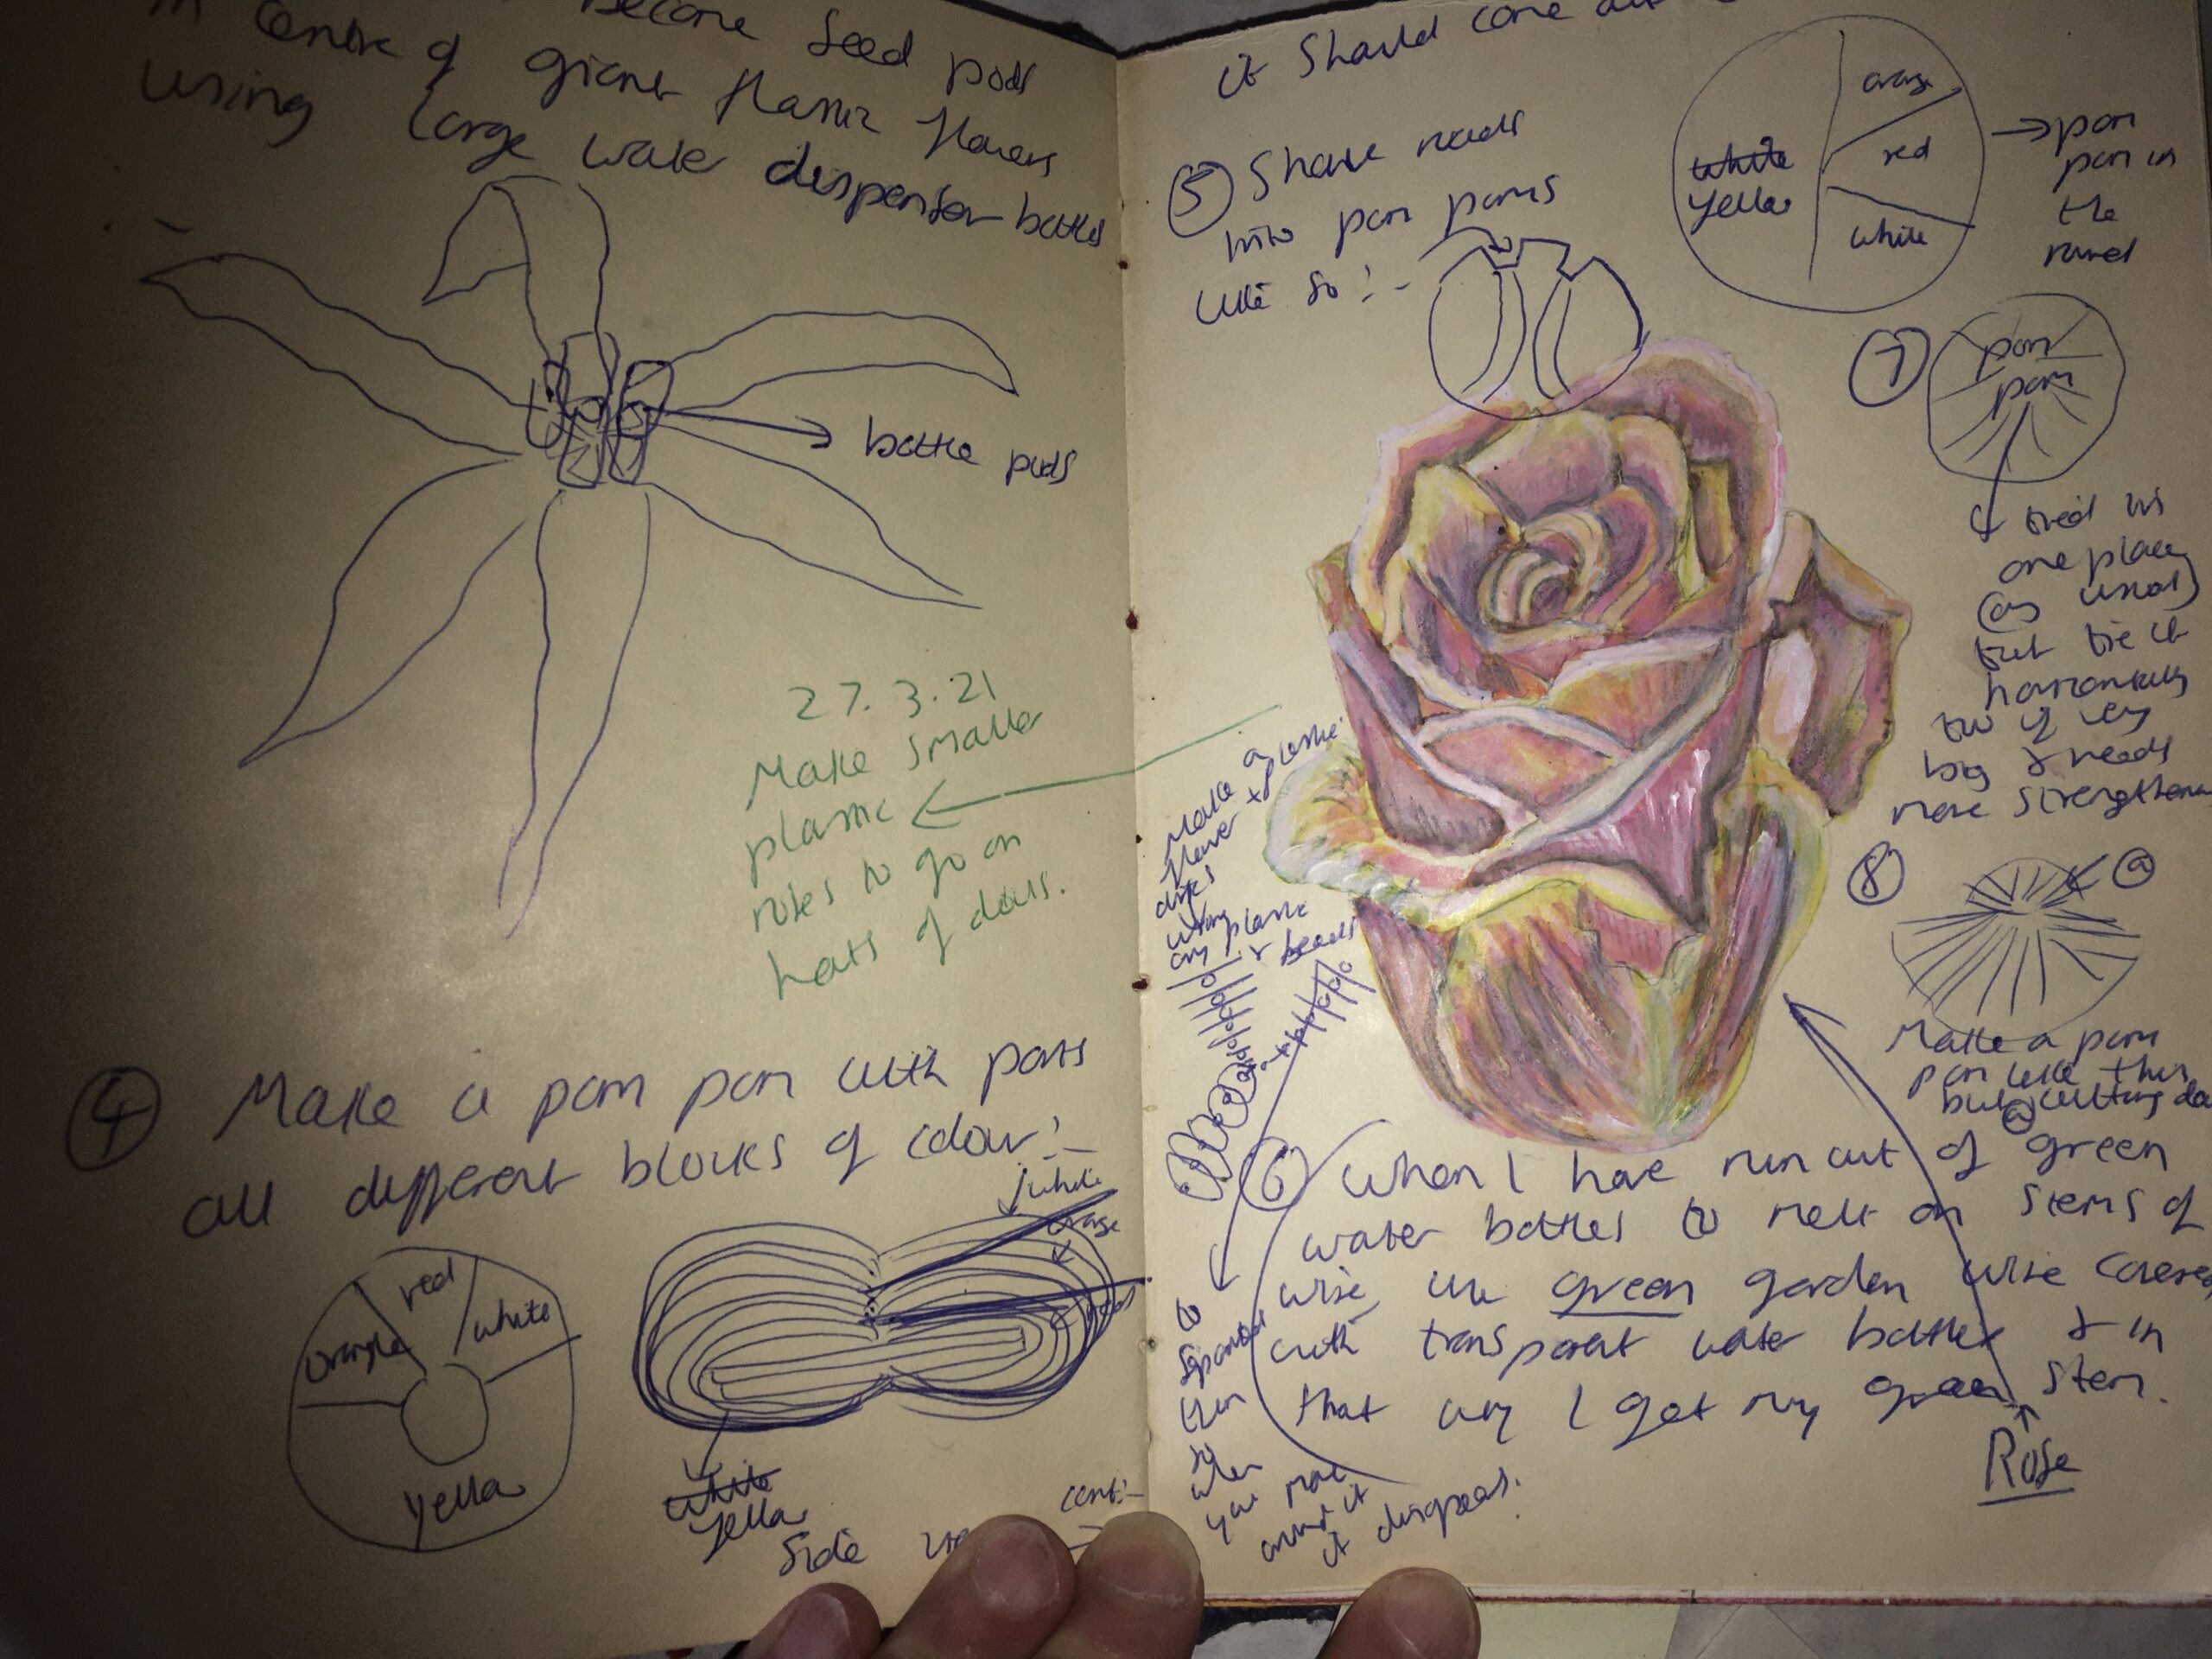 become seed pods
in centre of giant plastic flowers
using large water dispenser bottles
bottle pods
27.3.21
Make smaller
plastic
roses to go on
hats of dolls.
④ Make a pom pom with parts
all different blocks of colour:-
orange
red
white
yellow
white
orange
red
white
yellow
Side
cont:-
it should come out
⑤ Shave reeds
into pom poms
like so:-
orange
red
white
white
yellow
pom
pom in
the
round
⑦ pom
pom
tied in
one place
(as usual)
but tie it
horizontally
too if very
big & needs
more strengthening
⑧
ⓐ
Make a pom
pom like this
but cutting
ⓐ
Make a
flower + plastic
discs
using
any plastic
& beads
to
separate
them
so
when
you move
it
it disappears.
⑥ When I have run out of green
water bottles to melt on stems of
wire, use green garden wire covered
with transparent water bottles & in
that way I get my green stem.
Rose